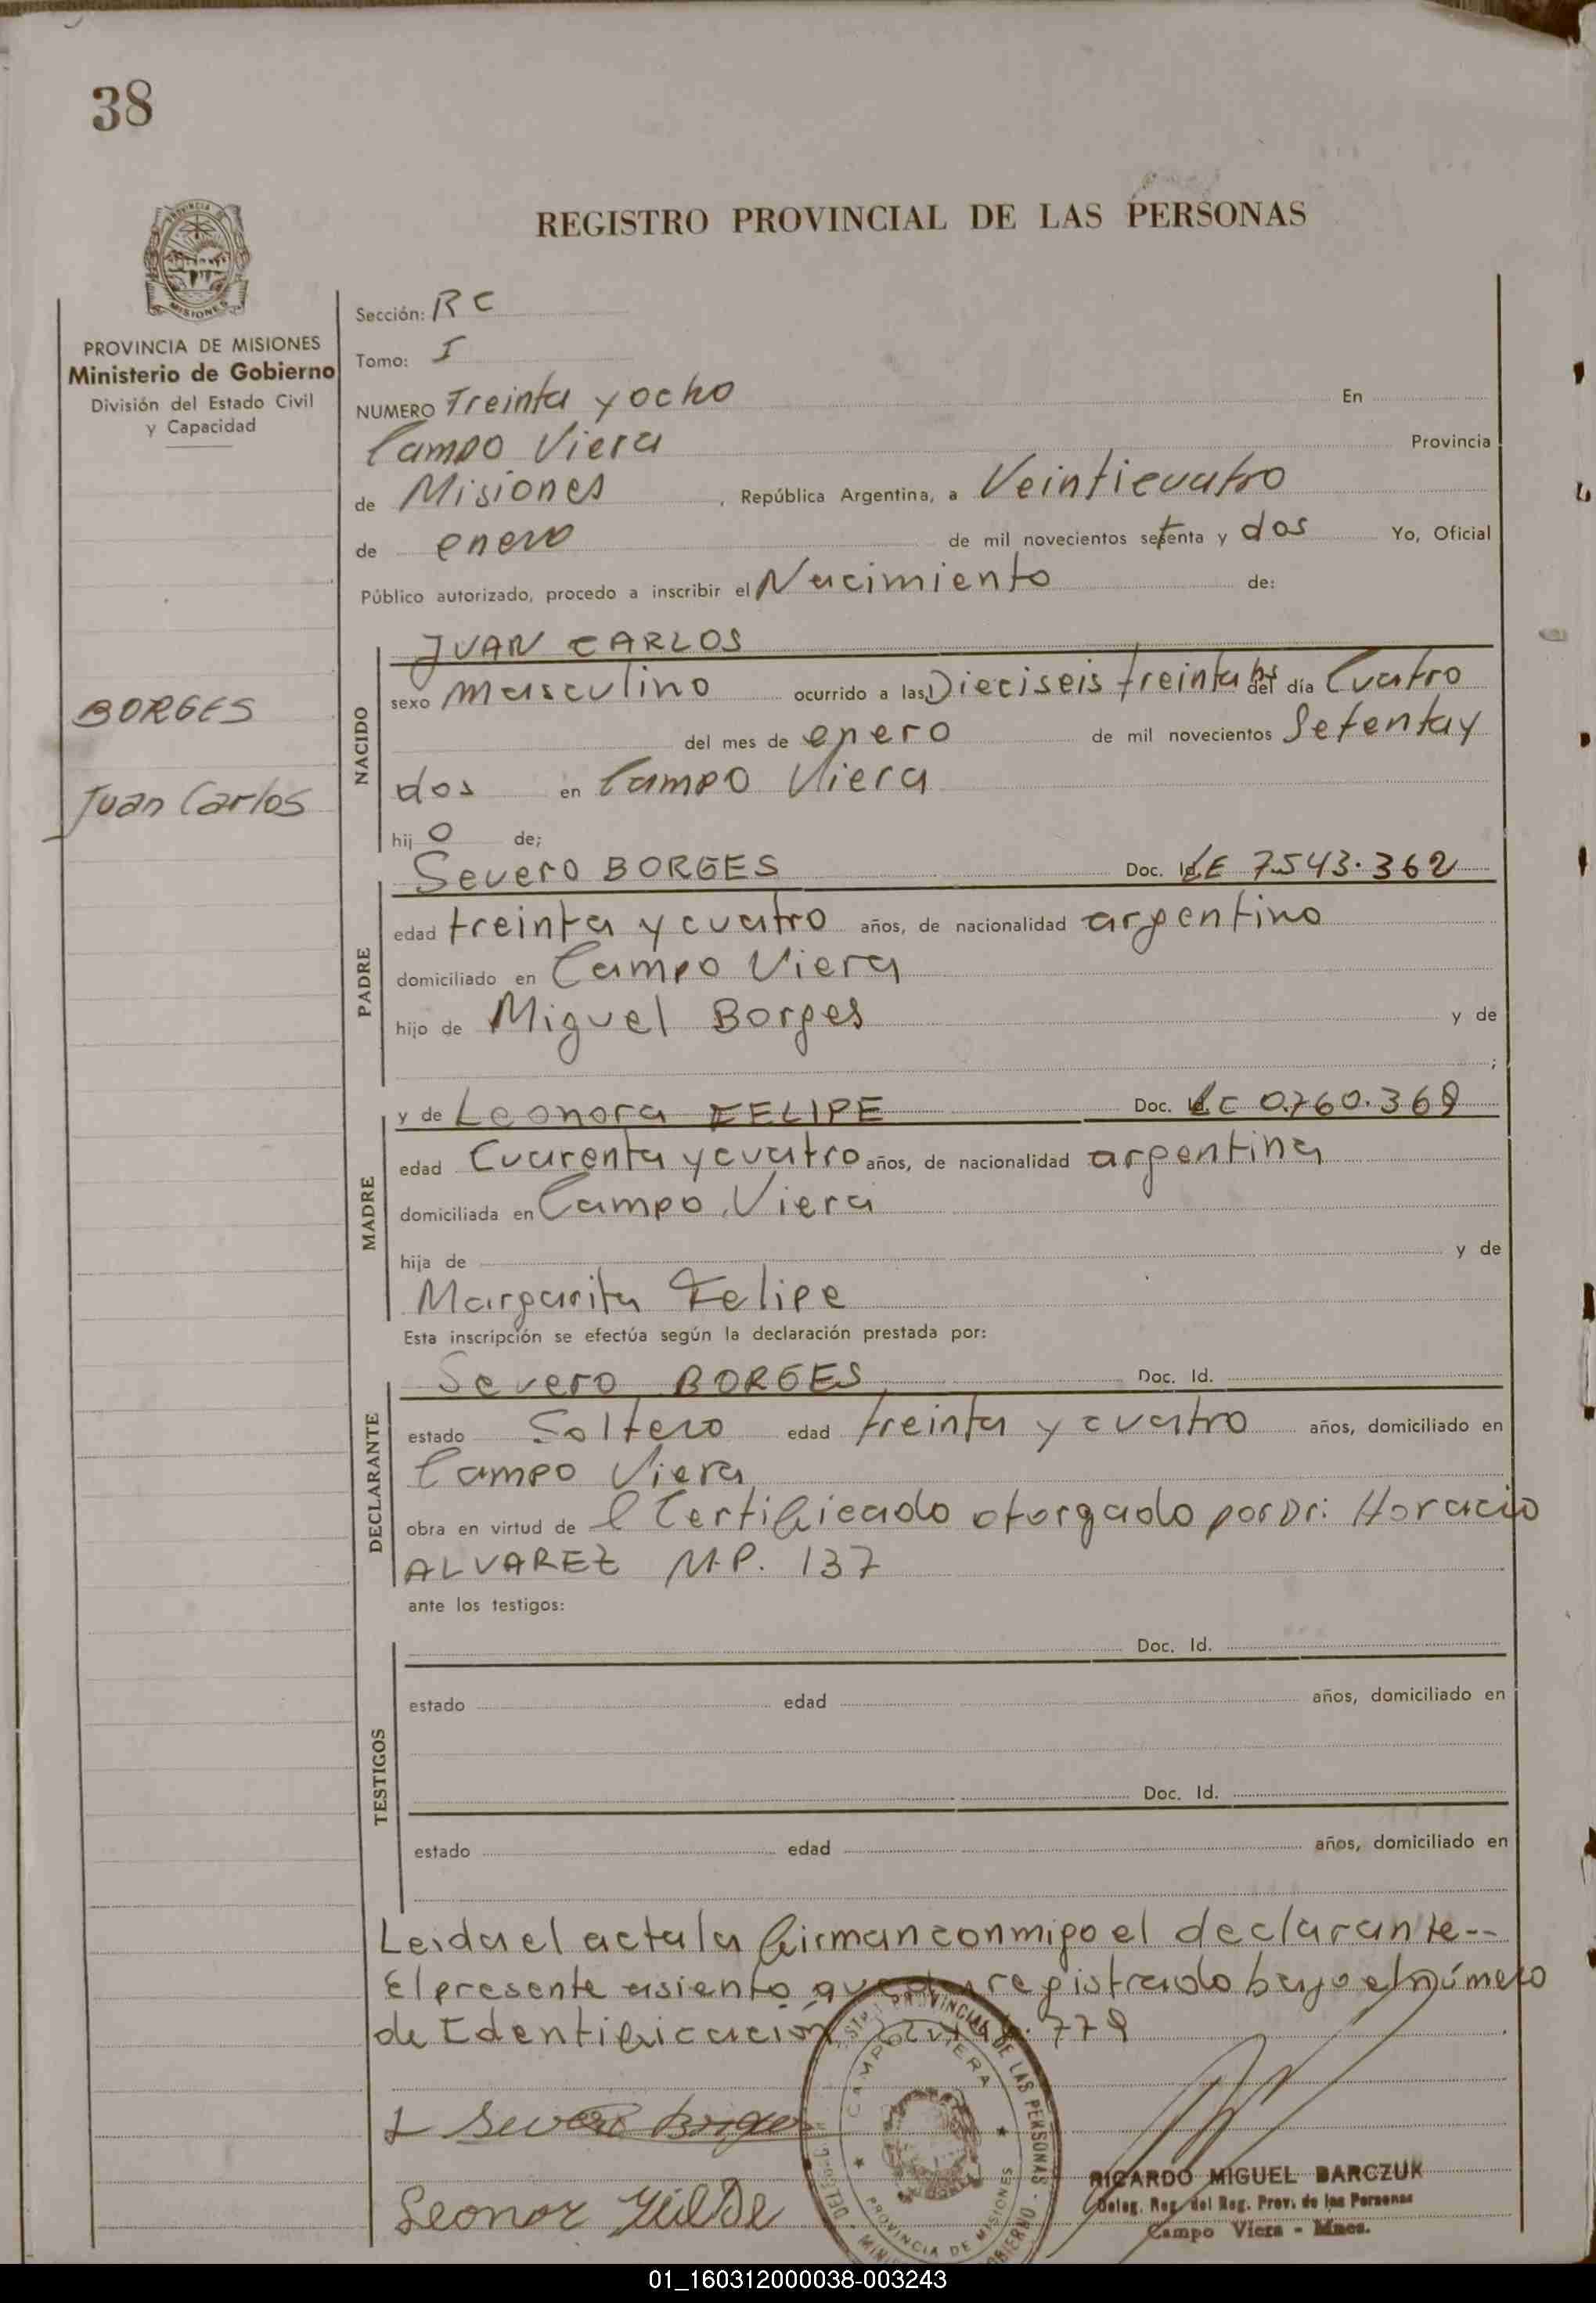 38
REGISTRO PROVINCIAL DE LAS PERSONAS
MISIONES
PROVINCIA DE MISIONES
Ministerio de Gobierno
División del Estado Civil
y Capacidad
BORGES
Juan Carlos
Sección: RC
Tomo: I
NUMERO Treinta y ocho En
Campo Viera Provincia
de Misiones, República Argentina, a Veinticuatro
de enero de mil novecientos setenta y dos Yo, Oficial
Público autorizado, procedo a inscribir el Nacimiento de:
NACIDO
JUAN CARLOS
sexo masculino ocurrido a las Dieciseis treinta hs del día Cuatro
del mes de enero de mil novecientos Setenta y
dos en Campo Viera
hijo de;
PADRE
Severo BORGES Doc. Id. LE 7.543.362
edad treinta y cuatro años, de nacionalidad argentino
domiciliado en Campo Viera
hijo de Miguel Borges y de
;
MADRE
y de Leonora FELIPE Doc. Id. LC 0.760.368
edad Cuarenta y cuatro años, de nacionalidad argentina
domiciliada en Campo Viera
hija de y de
Margarita Felipe
Esta inscripción se efectúa según la declaración prestada por:
DECLARANTE
Severo BORGES Doc. Id.
estado Soltero edad treinta y cuatro años, domiciliado en
Campo Viera
obra en virtud de l Certificado otorgado por Dr: Horacio
ALVAREZ M.P. 137
ante los testigos:
TESTIGOS
Doc. Id.
estado edad años, domiciliado en
Doc. Id.
estado edad años, domiciliado en
Leida el acta la firman conmigo el declarante--
El presente asiento queda registrado bajo el número
de Identificación 778
Severo Borges
Leonor
CAMPO VIERA
PROVINCIA DE MISIONES
RICARDO MIGUEL BARCZUK
Deleg. Reg. del Reg. Prov. de las Personas
Campo Viera - Mnes.
01_160312000038-003243